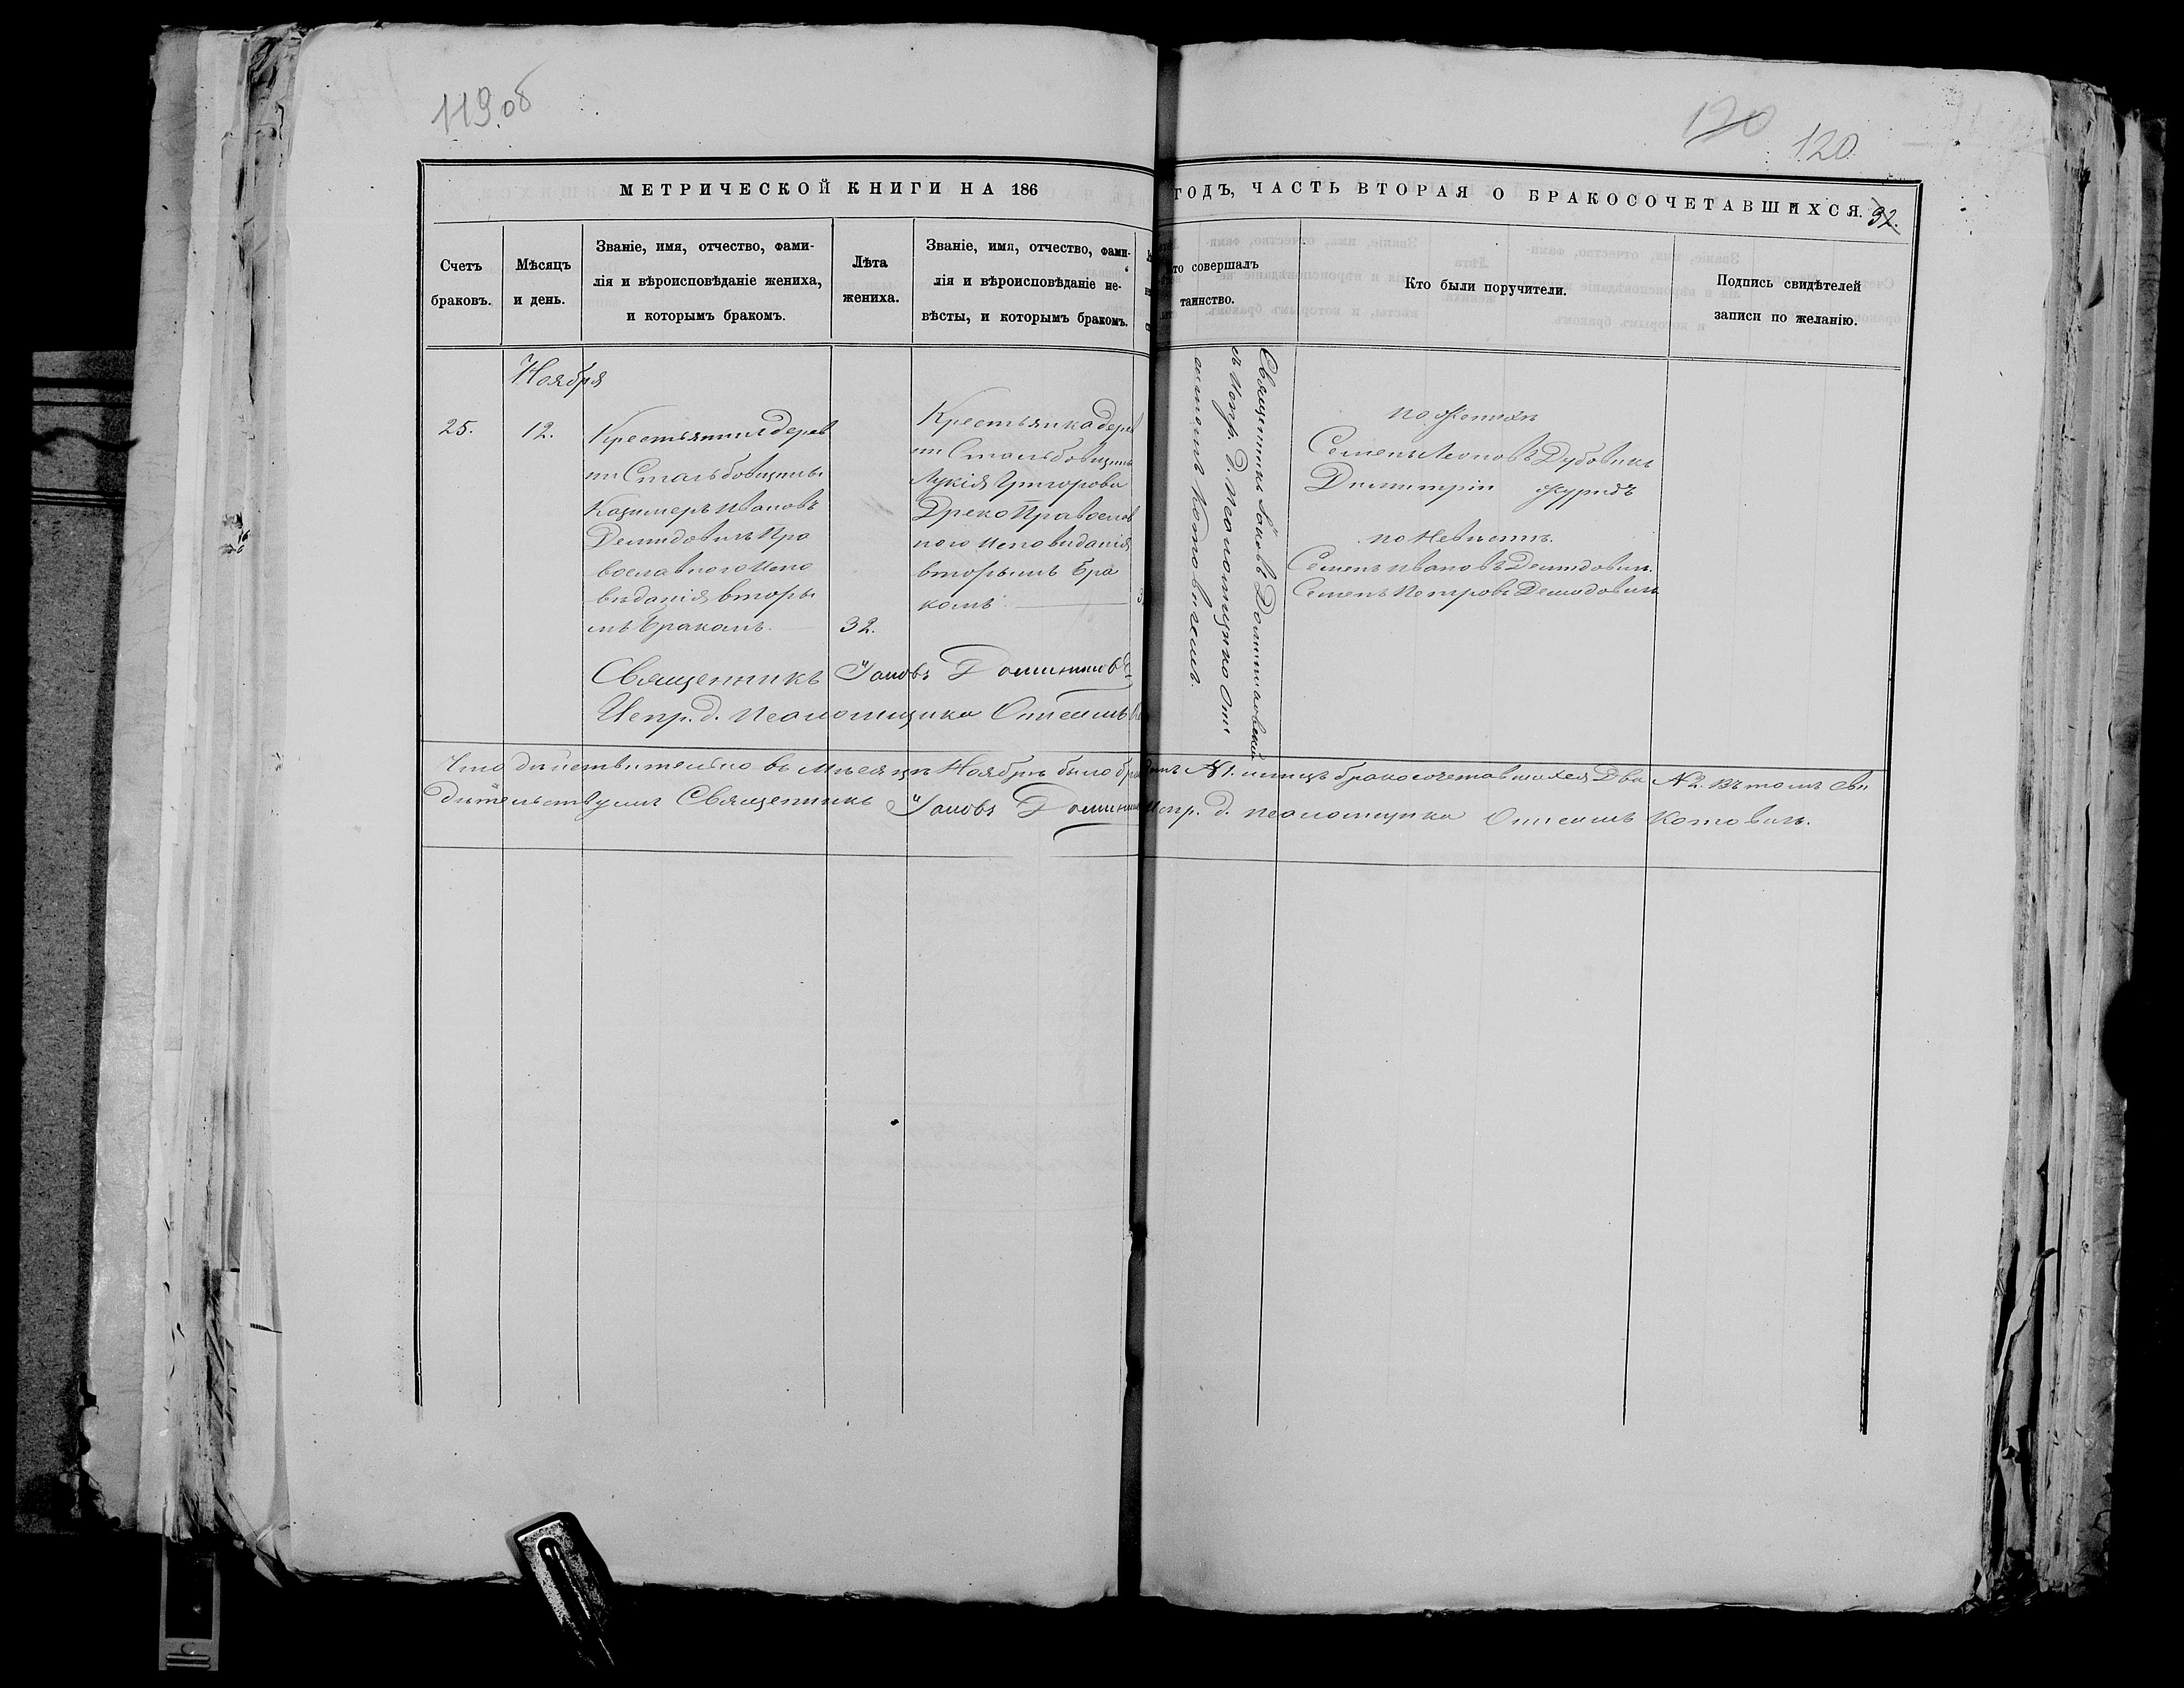 119 об
120
120
МЕТРИЧЕСКОЙ КНИГИ НА 186
ГОДЪ, ЧАСТЬ ВТОРАЯ О БРАКОСОЧЕТАВШИХСЯ. 32.
Счетъ
браковъ.
Мѣсяцъ
и день.
Званіе, имя, отчество, фами-
лія и вѣроисповѣданіе жениха,
и которымъ бракомъ.
Лѣта
жениха.
Званіе, имя, отчество, фами-
лія и вѣроисповѣданіе не-
вѣсты, и которымъ бракомъ.
то совершалъ
таинство.
Кто были поручители.
Подпись свидѣтелей
записи по желанію.
Ноября
25.
12.
Крестьянинъ дерев
ни Стальбовщины
Казимеръ Ивановъ
Демидовичъ Пра
вославного Испо
вѣданія вторы
мъ бракомъ.
32.
Крестьянка дерев
ни Стальбовщины
Лукія Григорова
Дреко Православ
ного Исповѣданія
вторымъ бра
комъ
Священникъ Іаковъ
въ Испр. д. Псаломщика
Котовичемъ.
по Женихѣ
Семенъ Леоновъ Дубовикъ
Димитрій
по Невѣстѣ.
Семенъ Ивановъ Демидовичъ.
Семенъ Петровъ Демидовичъ
Священникъ Іаковъ
Испр. д. Псаломщика Онисимъ
Что дѣйствительно въ Мѣсяцѣ Ноябрѣ было №1. лицъ бракосочетавшихся Два №2. Въ томъ сви
дѣтельствуемъ Священникъ Іаковъ Испр. д. Псаломщика Онисимъ Котовичъ.